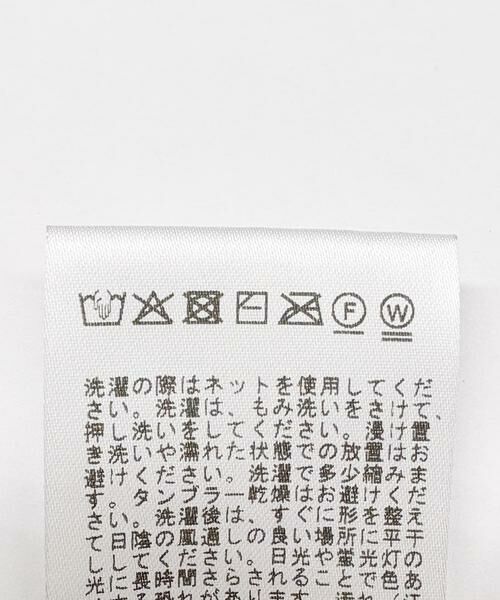 W
F
洗濯の際はネットを使用してくだ
さい。洗濯は、もみ洗いをさけ、
押し洗いをしてください。漬け置
き洗いやぬれた状態での放置はお
避けください。洗濯で多少縮みま
す。タンブラー乾燥はお避けくだ
さい。洗濯後は、すぐに形を整え
て日陰の風通しの良い場所に平干
してください。